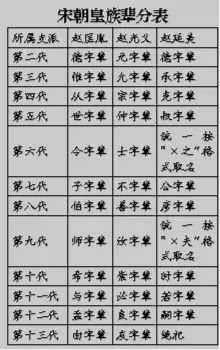 宋朝皇族辈分表
所属支派 赵匡胤 赵光义 赵廷美
第二代 德字辈 元字辈 德字辈
第三代 惟字辈 允字辈 承字辈
第四代 从字辈 宗字辈 克字辈
第五代 世字辈 仲字辈 叔字辈
第六代 令字辈 士字辈 统一按"×之"格式取名
第七代 子字辈 不字辈 公字辈
第八代 伯字辈 善字辈 彦字辈
第九代 师字辈 汝字辈 统一按"×夫"格式取名
第十代 希字辈 崇字辈 时字辈
第十一代 与字辈 必字辈 若字辈
第十二代 孟字辈 良字辈 嗣字辈
第十三代 由字辈 友字辈 绝祀